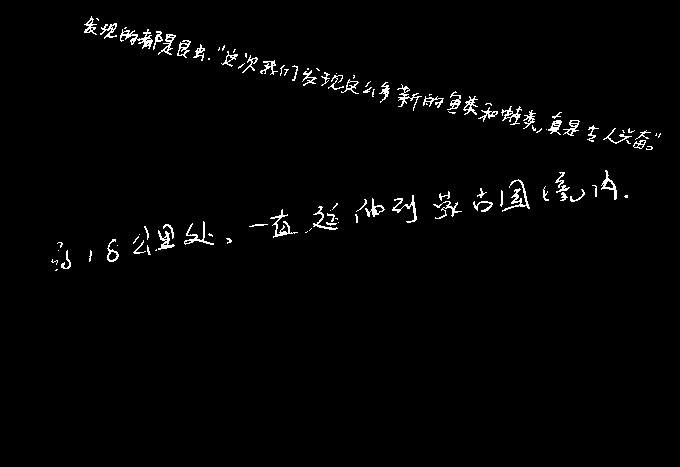 发现的都是昆虫."这次我们发现这么多新的鱼类和蛙类,真是令人兴奋。"
18公里处,一直延伸到蒙古国境内.